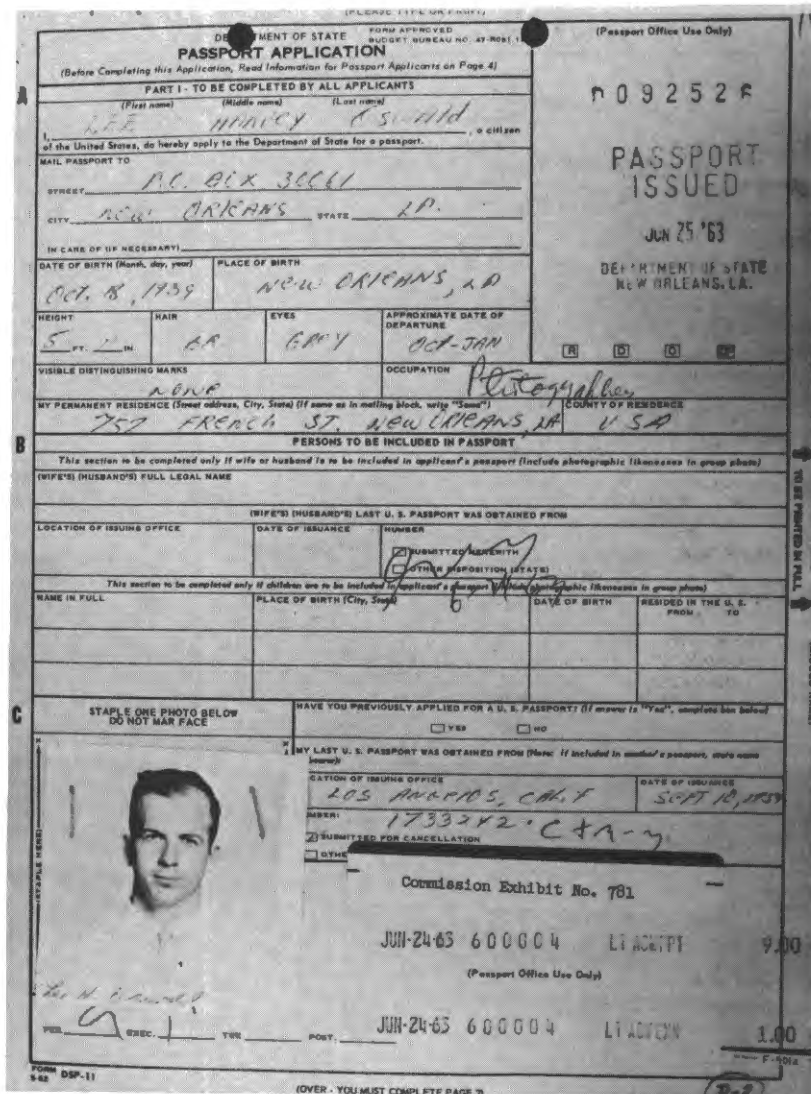 (PLEASE TYPE OR PRINT)
DEPARTMENT OF STATE
FORM APPROVED
BUDGET BUREAU NO. 47-R081.1
PASSPORT APPLICATION
(Before Completing this Application, Read Information for Passport Applicants on Page 4)
(Passport Office Use Only)
A
PART I - TO BE COMPLETED BY ALL APPLICANTS
(First name) (Middle name) (Last name)
I, LEE HARVEY OSWALD, a citizen
of the United States, do hereby apply to the Department of State for a passport.
092526
PASSPORT
ISSUED
JUN 25 '63
DEPARTMENT OF STATE
NEW ORLEANS, LA.
R D O
MAIL PASSPORT TO
STREET P.O. BOX 30061
CITY NEW ORLEANS STATE LA.
IN CARE OF (IF NECESSARY)
DATE OF BIRTH (Month, day, year) PLACE OF BIRTH
OCT. 18, 1939 NEW ORLEANS, LA
HEIGHT HAIR EYES APPROXIMATE DATE OF DEPARTURE
5 FT. IN. BR GREY OCT-JAN
VISIBLE DISTINGUISHING MARKS OCCUPATION
NONE Photographer
MY PERMANENT RESIDENCE (Street address, City, State) (If same as in mailing block, write "Same") COUNTY OF RESIDENCE
757 FRENCH ST. NEW ORLEANS, LA USA
B
PERSONS TO BE INCLUDED IN PASSPORT
This section to be completed only if wife or husband is to be included in applicant's passport (Include photographic likenesses in group photo)
(WIFE'S) (HUSBAND'S) FULL LEGAL NAME
(WIFE'S) (HUSBAND'S) LAST U. S. PASSPORT WAS OBTAINED FROM
LOCATION OF ISSUING OFFICE DATE OF ISSUANCE NUMBER
SUBMITTED HEREWITH
OTHER DISPOSITION (STATE)
This section to be completed only if children are to be included in applicant's passport (Include photographic likenesses in group photo)
NAME IN FULL PLACE OF BIRTH (City, State) DATE OF BIRTH RESIDED IN THE U. S.
FROM TO
TO BE PRINTED IN FULL
C
STAPLE ONE PHOTO BELOW
DO NOT MAR FACE
HAVE YOU PREVIOUSLY APPLIED FOR A U. S. PASSPORT? (If answer is "Yes", complete box below)
YES NO
MY LAST U. S. PASSPORT WAS OBTAINED FROM (Note: If included in another's passport, state name
bearer)
CATION OF ISSUING OFFICE DATE OF ISSUANCE
LOS ANGELES, CALIF SEPT 10, 1959
MBER: 1733242
SUBMITTED FOR CANCELLATION
OTHE
(STAPLE HERE)
Commission Exhibit No. 781
JUN-24-63 600004 9.00
(Passport Office Use Only)
JUN-24-63 600004 1.00
Lee H. Oswald
PER EXEC. POST.
F-501a
FORM DSP-11
5-62
(OVER - YOU MUST COMPLETE PAGE 2)
D-2